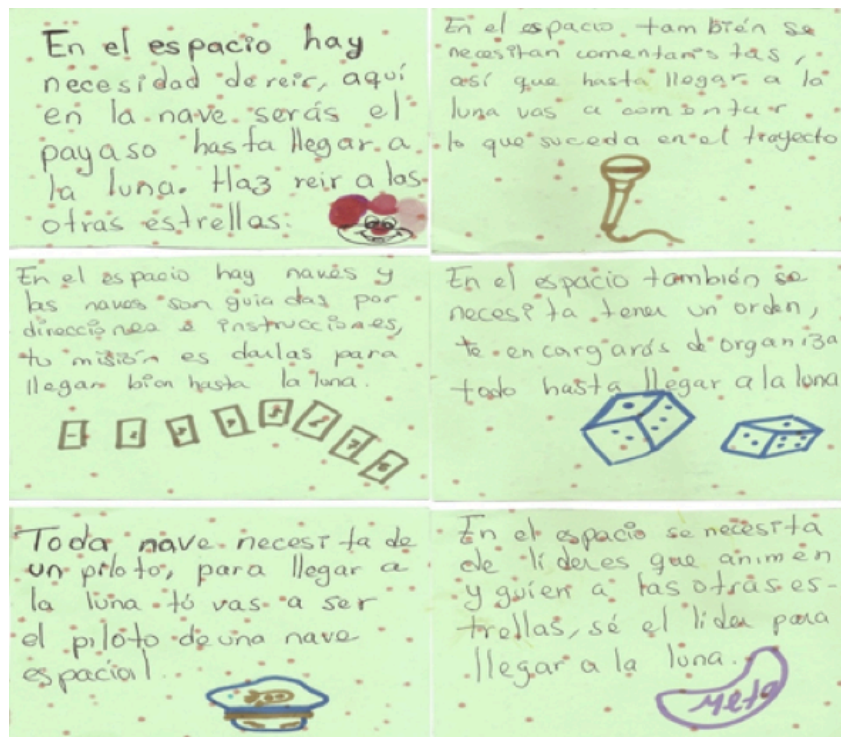 En el espacio hay
necesidad de reir, aquí
en la nave serás el
payaso hasta llegar a
la luna. Haz reir a las
otras estrellas.
En el espacio también se
necesitan comentaristas,
así que hasta llegar a la
luna vas a comentar
lo que suceda en el trayecto
En el espacio hay naves y
las naves son guiadas por
direcciones e instrucciones,
tu misión es darlas para
llegar bien hasta la luna.
En el espacio también se
necesita tener un orden,
te encargarás de organiza
todo hasta llegar a la luna
Toda nave necesita de
un piloto, para llegar a
la luna tú vas a ser
el piloto de una nave
espacial.
En el espacio se necesita
de lideres que animen
y guien a las otras es-
trellas, sé el lider para
llegar a la luna.
Meta